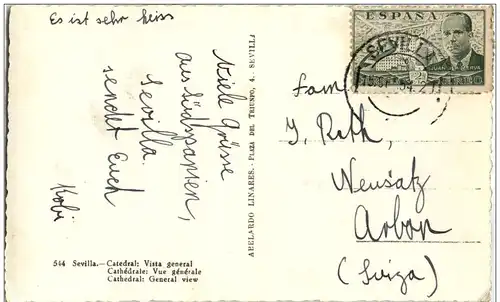 Es ist sehr heiss
Viele Grüsse
aus Südspanien,
Sevilla.
sendet Euch
Kobi
544 Sevilla.—Catedral: Vista general
Cathédrale: Vue générale
Cathedral: General view
ABELARDO LINARES.-PLAZA DEL TRIUNFO, 4. SEVILLA
ESPAÑA
SEVILLA
JUAN DE LA CIERVA
Fam.
J. Roth,
Neusatz
Arbon
(Suiza)